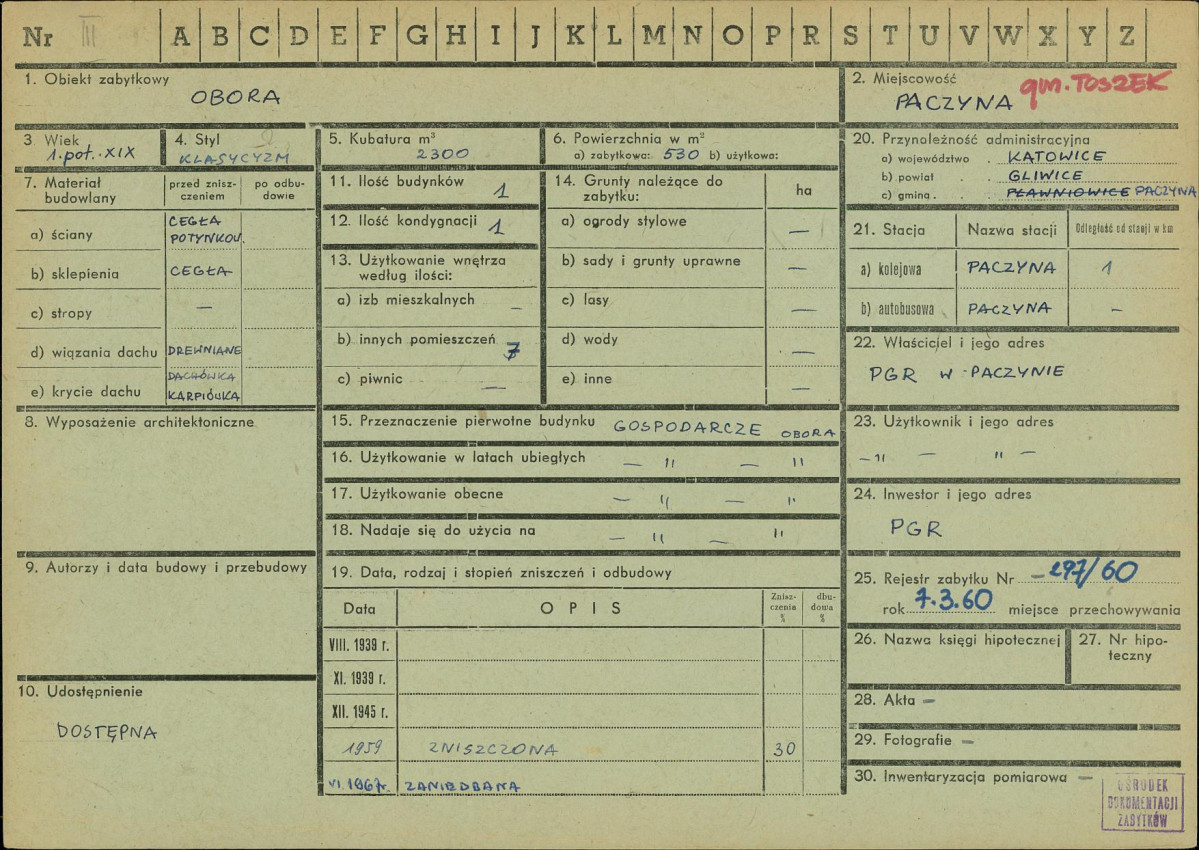 Nr III A B C D E F G H I J K L M N O P R S T U V W X Y Z
1. Obiekt zabytkowy
OBORA
2. Miejscowość
PACZYNA gm. TOSZEK
3 Wiek
1. poł. XIX
4. Styl
KLASYCYZM
5. Kubatura m³
2300
6. Powierzchnia w m²
a) zabytkowa: 530 b) użytkowa:
7. Materiał budowlany
przed znisz-
czeniem
po odbu-
dowie
a) ściany CEGŁA
POTYNKOW.
b) sklepienia CEGŁA
c) stropy —
d) wiązania dachu DREWNIANE
e) krycie dachu DACHÓWKA
KARPIÓWKA
8. Wyposażenie architektoniczne
9. Autorzy i data budowy i przebudowy
10. Udostępnienie
DOSTĘPNA
11. Ilość budynków 1
12. Ilość kondygnacji 1
13. Użytkowanie wnętrza
według ilości:
a) izb mieszkalnych –
b) innych pomieszczeń 7
c) piwnic —
14. Grunty należące do
zabytku:
ha
a) ogrody stylowe —
b) sady i grunty uprawne —
c) lasy —
d) wody —
e) inne —
15. Przeznaczenie pierwotne budynku GOSPODARCZE OBORA
16. Użytkowanie w latach ubiegłych — " — "
17. Użytkowanie obecne — " — "
18. Nadaje się do użycia na — " — "
19. Data, rodzaj i stopień zniszczeń i odbudowy
Data
OPIS
Znisz-
czenia
%
dbu-
dowa
%
VIII. 1939 r.
XI. 1939 r.
XII. 1945 r.
1959 ZNISZCZONA 30
VI. 1967r. ZANIEDBANA
20. Przynależność administracyjna
a) województwo . KATOWICE
b) powiat . . GLIWICE
c) gmina . . PŁAWNIOWICE PACZYNA
21. Stacja
Nazwa stacji
Odległość od stacji w km
a) kolejowa PACZYNA 1
b) autobusowa PACZYNA –
22. Właściciel i jego adres
PGR W PACZYNIE
23. Użytkownik i jego adres
– " – " –
24. Inwestor i jego adres
PGR
25. Rejestr zabytku Nr – 297/60
rok 7.3.60 miejsce przechowywania
26. Nazwa księgi hipotecznej
27. Nr hipo-
teczny
28. Akta –
29. Fotografie –
30. Inwentaryzacja pomiarowa –
OŚRODEK
DOKUMENTACJI
ZABYTKÓW